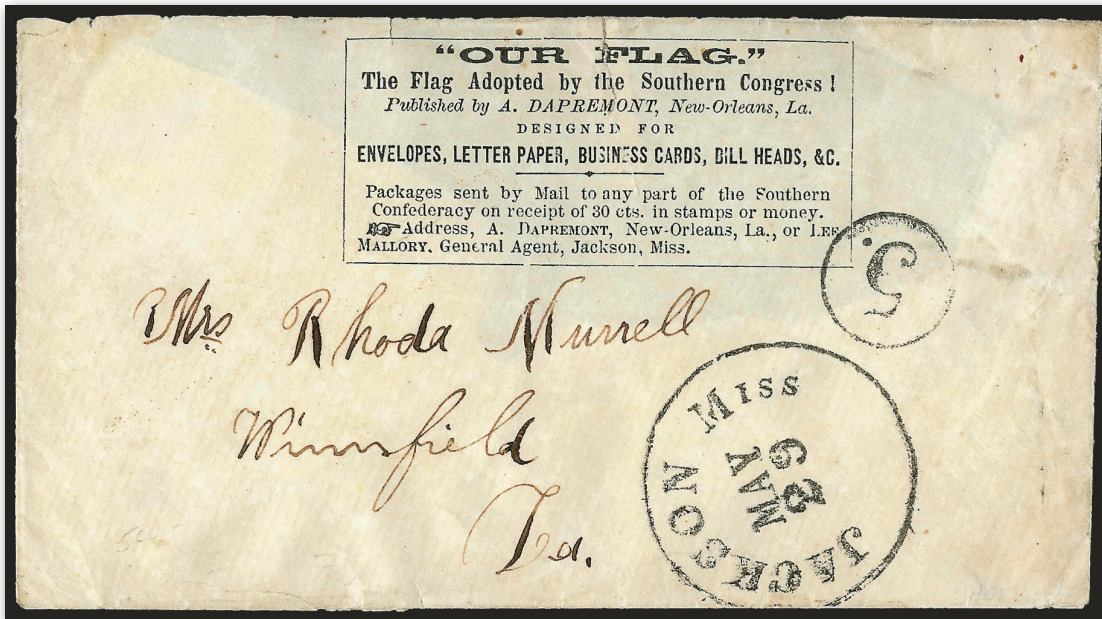 “OUR FLAG.”
The Flag Adopted by the Southern Congress!
Published by A. DAPREMONT, New-Orleans, La.
DESIGNED FOR
ENVELOPES, LETTER PAPER, BUSINESS CARDS, BILL HEADS, &C.
Packages sent by Mail to any part of the Southern
Confederacy on receipt of 30 cts. in stamps or money.
☞ Address, A. DAPREMONT, New-Orleans, La., or LEE
MALLORY, General Agent, Jackson, Miss.
5.
Mrs Rhoda Murrell
Winnsfield
La.
JACKSON Miss
MAY
29